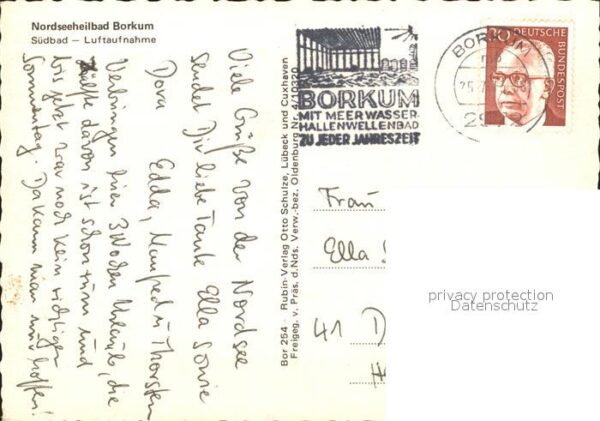 Nordseeheilbad Borkum
Südbad – Luftaufnahme
Viele Grüße von der Nordsee
sendet Dir liebe Tante Ella sowie
Dora Edda, Manfred u. Thorsten
Verbringen hier 3 Wochen Urlaub, die
Hälfte davon ist schon rum und
bis jetzt war noch kein richtiger
Sommertag. Da kann man nur hoffen!
Bor 254 · Rubin-Verlag Otto Schulze, Lübeck und Cuxhaven
Freigeg. v. Präs. d. Nds. Verw.-bez. Oldenburg Nr. 4/10220
BORKUM
MIT MEERWASSER-
HALLENWELLENBAD
ZU JEDER JAHRESZEIT
BORKUM
DEUTSCHE
BUNDESPOST
Frau
Ella
41 D
privacy protection
Datenschutz